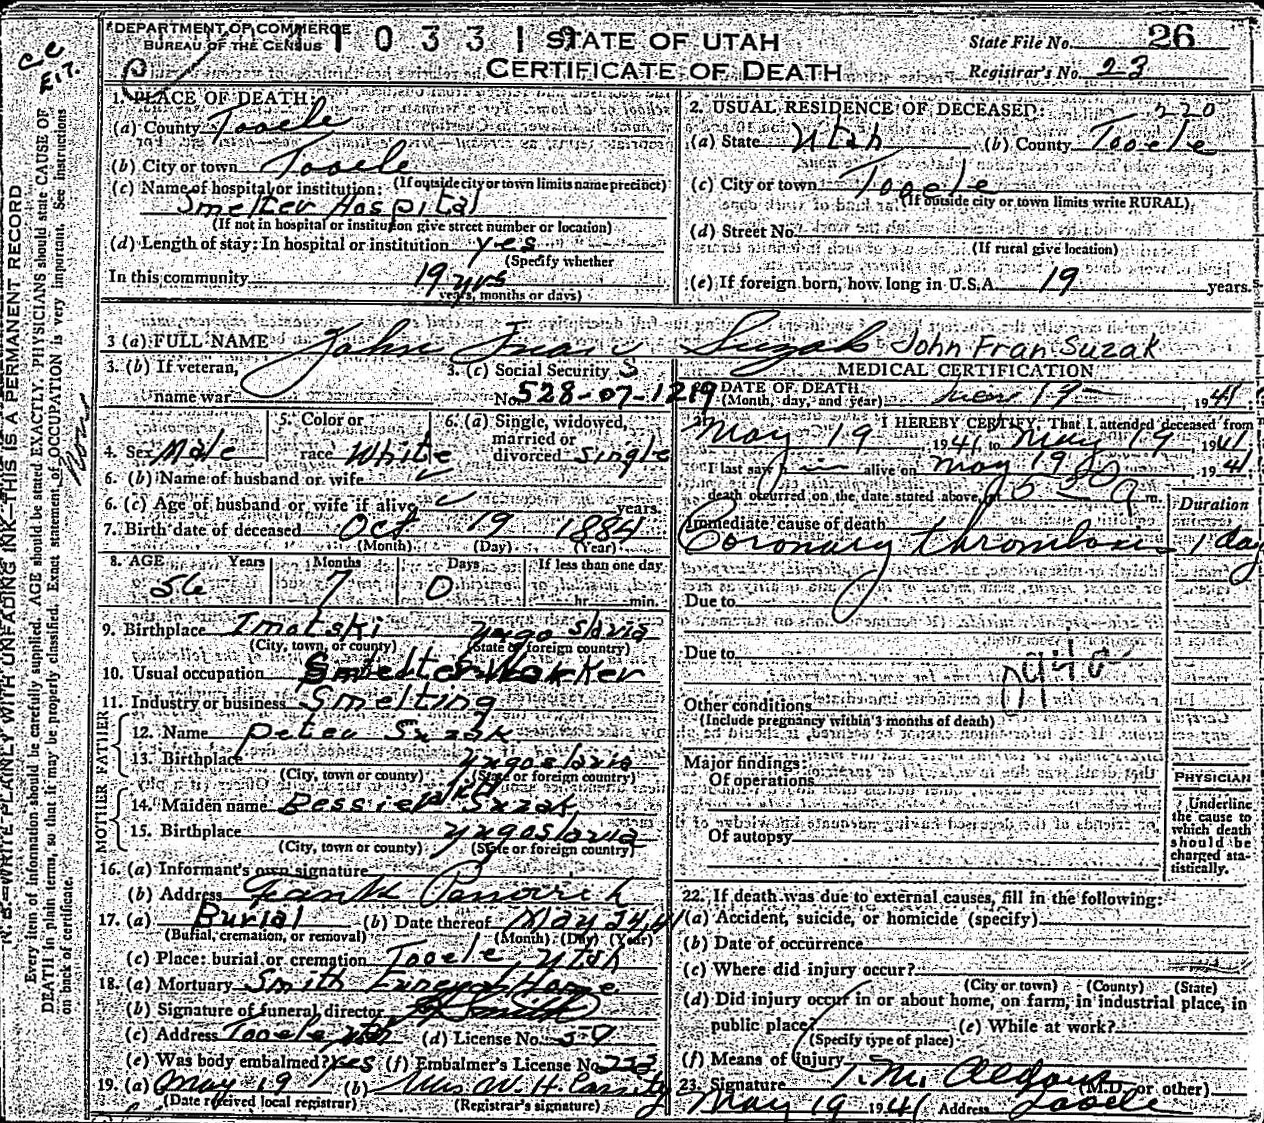 DEPARTMENT OF COMMERCE
BUREAU OF THE CENSUS
1 0 3 3 1 9
STATE OF UTAH
CERTIFICATE OF DEATH
State File No. 26
Registrar's No. 23
N. B.—WRITE PLAINLY WITH UNFADING INK—THIS IS A PERMANENT RECORD
Every item of information should be carefully supplied. AGE should be stated EXACTLY. PHYSICIANS should state CAUSE OF
DEATH in plain terms, so that it may be properly classified. Exact statement of OCCUPATION is very important. See instructions
on back of certificate.
1. PLACE OF DEATH
(a) County Tooele
(b) City or town Tooele
(If outside city or town limits name precinct)
(c) Name of hospital or institution:
Smelter Hospital
(If not in hospital or institution give street number or location)
(d) Length of stay: In hospital or institution yes
(Specify whether
In this community 19 yrs
years, months or days)
2. USUAL RESIDENCE OF DECEASED: 220
(a) State Utah (b) County Tooele
(c) City or town Tooele
(If outside city or town limits write RURAL)
(d) Street No.
(If rural give location)
(e) If foreign born, how long in U.S.A. 19 years.
3 (a) FULL NAME John Fran Suzak John Fran Suzak
3. (b) If veteran,
name war
3. (c) Social Security
No. 528-07-1219
4. Sex Male
5. Color or
race White
6. (a) Single, widowed,
married or
divorced Single
6. (b) Name of husband or wife
6. (c) Age of husband or wife if alive years.
7. Birth date of deceased Oct 19 1884
(Month) (Day) (Year)
8. AGE Years Months Days If less than one day
56 7 0 hr. min.
9. Birthplace Imotski Yugoslavia
(City, town, or county) (State or foreign country)
10. Usual occupation Smelter Worker
11. Industry or business Smelting
FATHER
12. Name Peter Suzak
13. Birthplace Yugoslavia
(City, town or county) (State or foreign country)
MOTHER
14. Maiden name Bessie Suzak
15. Birthplace Yugoslavia
(City, town or county) (State or foreign country)
16. (a) Informant's own signature
(b) Address Frank Panovich
17. (a) Burial (b) Date thereof May 24, 41
(Burial, cremation, or removal) (Month) (Day) (Year)
(c) Place: burial or cremation Tooele, Utah
18. (a) Mortuary Smith Funeral Home
(b) Signature of funeral director Smith
(c) Address Tooele Utah (d) License No. 50
(e) Was body embalmed? Yes (f) Embalmer's License No. 233
19. (a) May 19 (b) Mrs W. H. Cassity
(Date received local registrar) (Registrar's signature)
MEDICAL CERTIFICATION
DATE OF DEATH
(Month, day, and year) 1941
I HEREBY CERTIFY, That I attended deceased from
May 19 1941 to May 19 1941
I last saw h im alive on May 19 1941
death occurred on the date stated above, at m.
Duration
Immediate cause of death
Coronary thrombosis 1 day
Due to
Due to
Other conditions
(Include pregnancy within 3 months of death)
Major findings:
Of operations
Of autopsy
PHYSICIAN
Underline
the cause to
which death
should be
charged sta-
tistically.
22. If death was due to external causes, fill in the following:
(a) Accident, suicide, or homicide (specify)
(b) Date of occurrence
(c) Where did injury occur?
(City or town) (County) (State)
(d) Did injury occur in or about home, on farm, in industrial place, in
public place? (e) While at work?
(Specify type of place)
(f) Means of injury
23. Signature T. M. Aldous (M.D. or other)
May 19 1941 Address Tooele